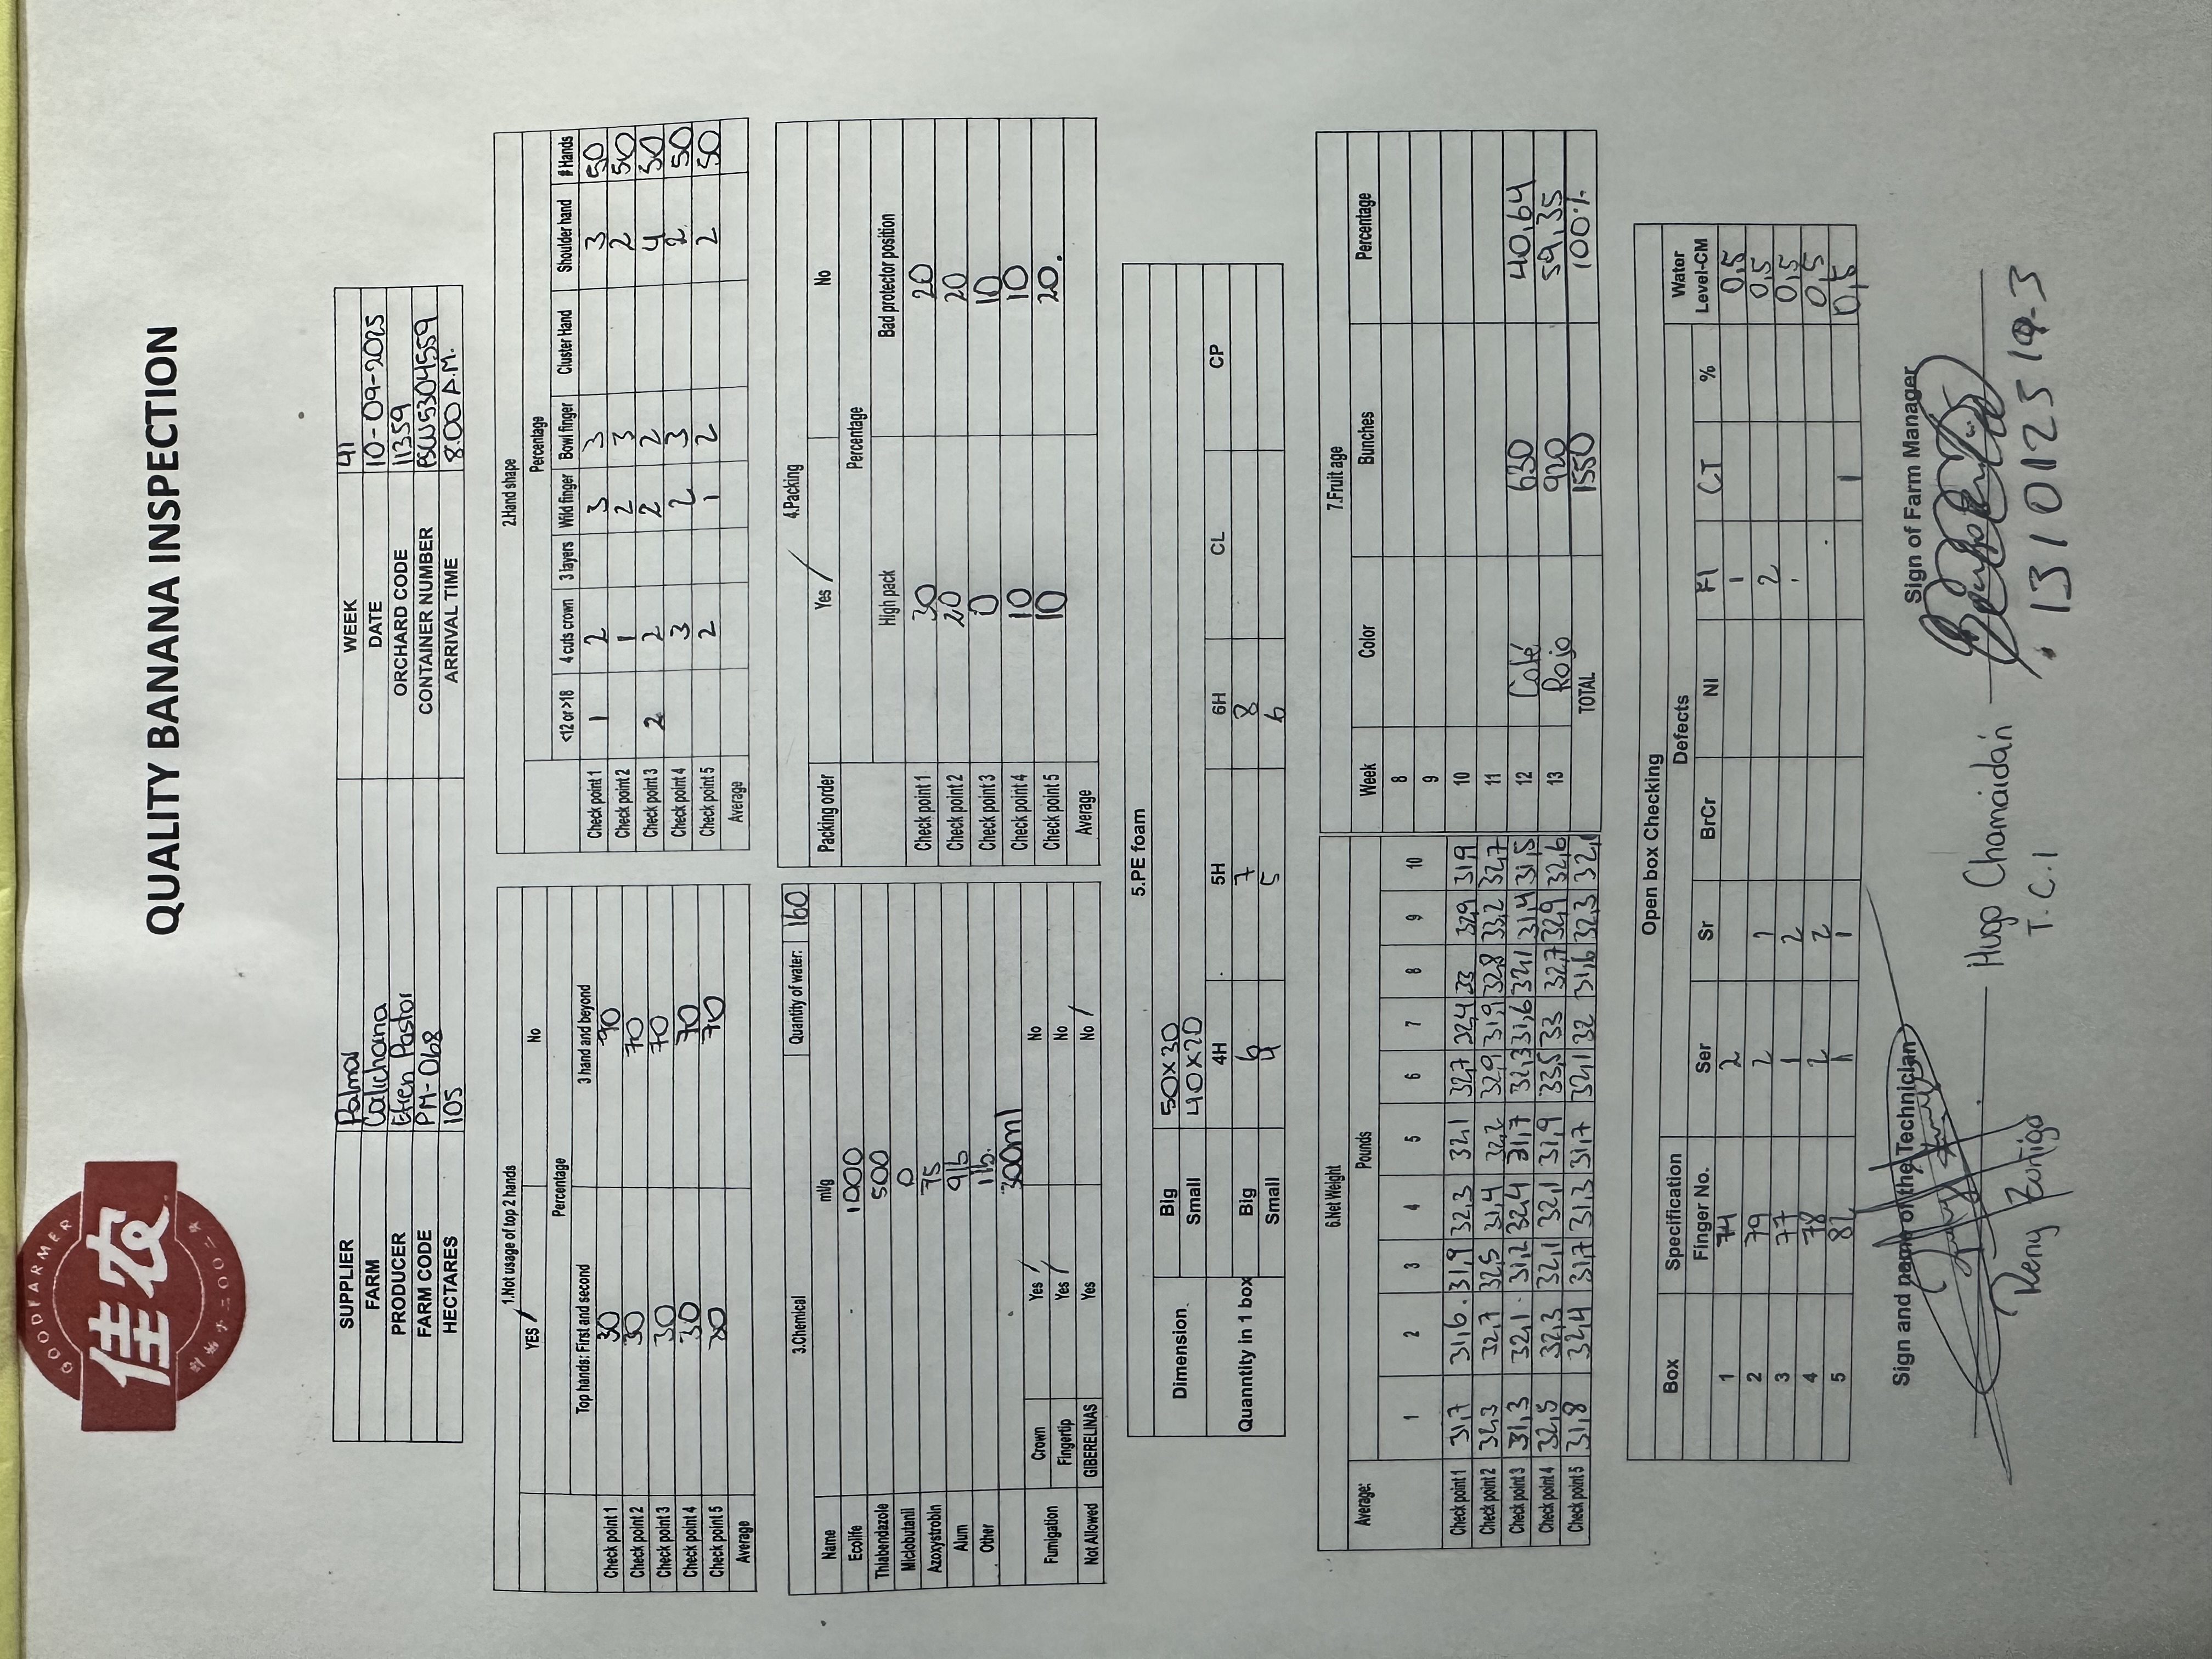 GOODFARMER
佳农
创始于二〇〇二年
QUALITY BANANA INSPECTION
SUPPLIER Palmar WEEK 41
FARM Calichana DATE 10-09-2025
PRODUCER Efren Pastor ORCHARD CODE 11359
FARM CODE PM-068 CONTAINER NUMBER 5304559
HECTARES 105 ARRIVAL TIME 8:00 A.M.
1.Not usage of top 2 hands
YES / No
Percentage
Top hands: First and second 3 hand and beyond
Check point 1 30 70
Check point 2 30 70
Check point 3 30 70
Check point 4 30 70
Check point 5 30 70
Average
2.Hand shape
Percentage
<12 or >18 4 cuts crown 3 layers Wild finger Bowl finger Cluster Hand Shoulder hand # Hands
Check point 1 1 2 3 3 3 50
Check point 2 1 2 3 2 50
Check point 3 2 2 2 2 4 50
Check point 4 3 2 3 2 50
Check point 5 2 1 2 2 50
Average
3.Chemical Quantity of water: 160
Name ml/g
Ecolife 1000
Thiabendazole 500
Miclobutanil 0
Azoxystrobin 75
Alum 9lb
Other 1lb.
300ml
Fumigation Crown Yes / No
Fingertip Yes / No
Not Allowed GIBERELINAS Yes No /
4.Packing
Packing order Yes / No
Percentage
High pack Bad protector position
Check point 1 30 20
Check point 2 20 20
Check point 3 0 10
Check point 4 10 10
Check point 5 10 20.
Average
5.PE foam
Dimension Big 50x30
Small 40x20
4H 5H 6H CL CP
Quanntity in 1 box Big 6 7 8
Small 4 5 6
6.Net Weight
Average: Pounds
1 2 3 4 5 6 7 8 9 10
Check point 1 31,7 31,6 31,9 32,3 32,1 32,7 32,4 33 32,9 31,9
Check point 2 32,3 32,7 32,5 31,4 32,2 32,9 31,9 32,8 33,2 32,7
Check point 3 31,3 32,1 31,2 32,4 31,7 32,3 31,6 32,1 31,4 31,5
Check point 4 32,5 32,3 32,1 32,1 31,9 33,5 33 32,7 32,9 32,6
Check point 5 31,8 32,4 31,7 31,3 31,7 32,1 32 31,6 32,3 32,1
7.Fruit age
Week Color Bunches Percentage
8
9
10
11
12 Café 630 40,64
13 Rojo 920 59,35
TOTAL 1550 100%
Open box Checking
Box Specification Defects Water
Finger No. Ser Sr BrCr NI FI CT % Level-CM
1 74 2 1 0,5
2 79 2 1 2 0,5
3 77 1 2 0,5
4 78 2 2 0,5
5 82 1 1 1 0,5
Sign and name of the Technician
Sign of Farm Manager
Hugo Chamaidán
Reny Zuñiga
T.C.I